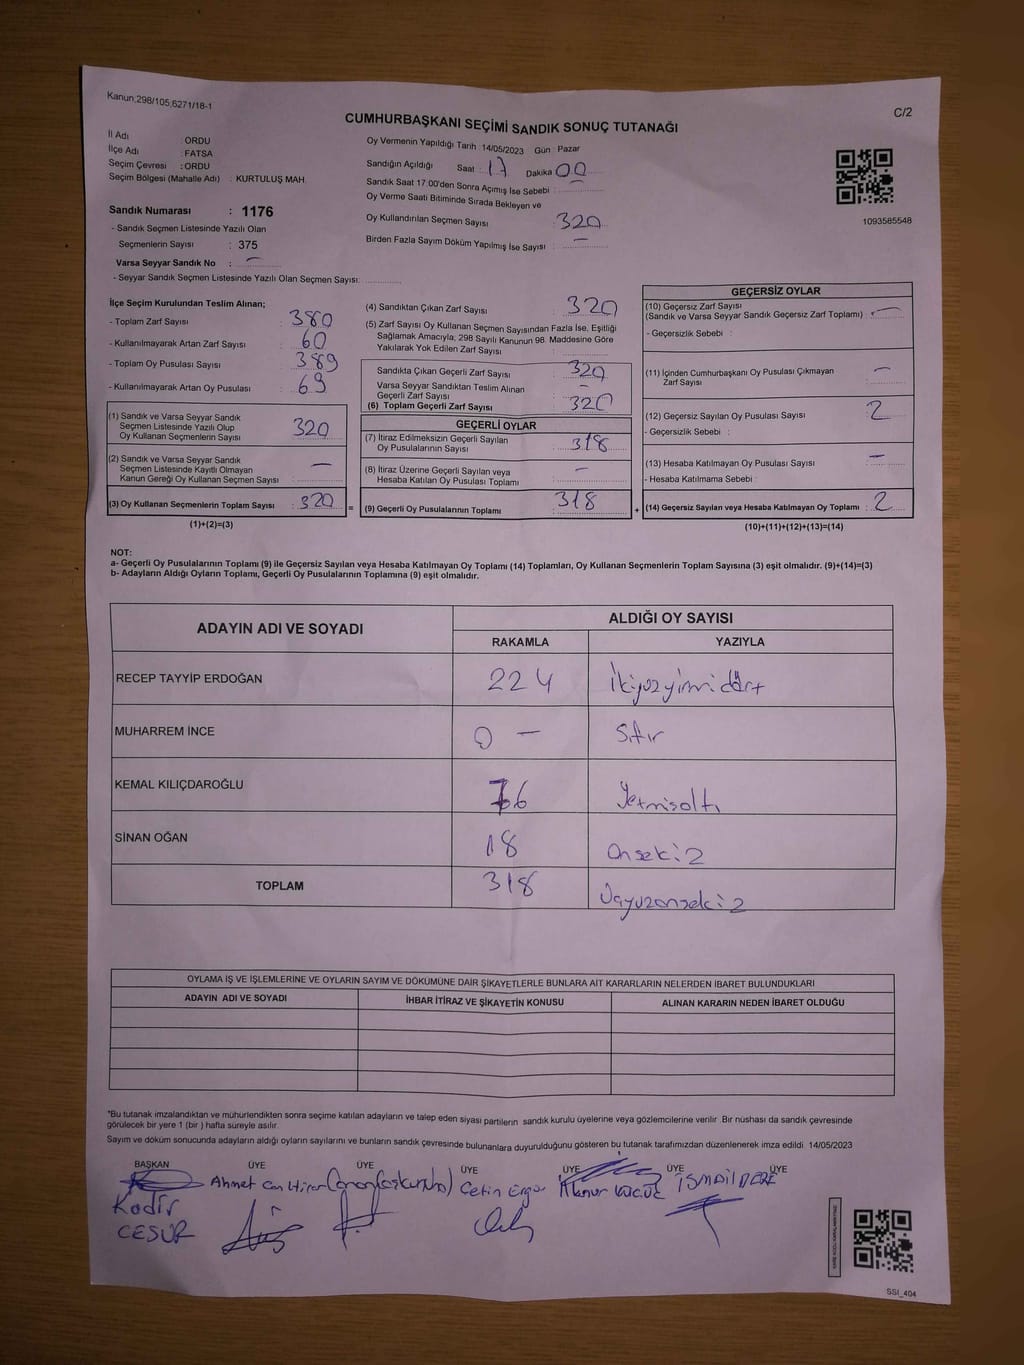 Kanun;298/105,6271/18-1
C/2
CUMHURBAŞKANI SEÇİMİ SANDIK SONUÇ TUTANAĞI
İl Adı : ORDU
İlçe Adı : FATSA
Seçim Çevresi : ORDU
Seçim Bölgesi (Mahalle Adı) : KURTULUŞ MAH.
Oy Vermenin Yapıldığı Tarih : 14/05/2023 Gün : Pazar
Sandığın Açıldığı Saat : 17 Dakika 00
Sandık Saat 17.00'den Sonra Açımış İse Sebebi : —
Oy Verme Saati Bitiminde Sırada Bekleyen ve
Oy Kullandırılan Seçmen Sayısı 320
Birden Fazla Sayım Döküm Yapılmış İse Sayısı : —
1093585548
Sandık Numarası : 1176
- Sandık Seçmen Listesinde Yazılı Olan
Seçmenlerin Sayısı : 375
Varsa Seyyar Sandık No : —
- Seyyar Sandık Seçmen Listesinde Yazılı Olan Seçmen Sayısı:
İlçe Seçim Kurulundan Teslim Alınan;
- Toplam Zarf Sayısı : 380
- Kullanılmayarak Artan Zarf Sayısı : 60
- Toplam Oy Pusulası Sayısı : 389
- Kullanılmayarak Artan Oy Pusulası : 69
(1) Sandık ve Varsa Seyyar Sandık
Seçmen Listesinde Yazılı Olup
Oy Kullanan Seçmenlerin Sayısı : 320
(2) Sandık ve Varsa Seyyar Sandık
Seçmen Listesinde Kayıtlı Olmayan
Kanun Gereği Oy Kullanan Seçmen Sayısı : —
(3) Oy Kullanan Seçmenlerin Toplam Sayısı : 320 =
(1)+(2)=(3)
(4) Sandıktan Çıkan Zarf Sayısı : 320
(5) Zarf Sayısı Oy Kullanan Seçmen Sayısından Fazla İse, Eşitliği
Sağlamak Amacıyla; 298 Sayılı Kanunun 98. Maddesine Göre
Yakılarak Yok Edilen Zarf Sayısı :
Sandıkta Çıkan Geçerli Zarf Sayısı : 320
Varsa Seyyar Sandıktan Teslim Alınan
Geçerli Zarf Sayısı : —
(6) Toplam Geçerli Zarf Sayısı : 320
GEÇERLİ OYLAR
(7) İtiraz Edilmeksizin Geçerli Sayılan
Oy Pusulalarının Sayısı : 318
(8) İtiraz Üzerine Geçerli Sayılan veya
Hesaba Katılan Oy Pusulası Toplamı : —
(9) Geçerli Oy Pusulalarının Toplamı : 318 +
GEÇERSİZ OYLAR
(10) Geçersiz Zarf Sayısı
(Sandık ve Varsa Seyyar Sandık Geçersiz Zarf Toplamı) : —
- Geçersizlik Sebebi :
(11) İçinden Cumhurbaşkanı Oy Pusulası Çıkmayan
Zarf Sayısı : —
(12) Geçersiz Sayılan Oy Pusulası Sayısı : 2
- Geçersizlik Sebebi :
(13) Hesaba Katılmayan Oy Pusulası Sayısı : —
- Hesaba Katılmama Sebebi :
(14) Geçersiz Sayılan veya Hesaba Katılmayan Oy Toplamı : 2
(10)+(11)+(12)+(13)=(14)
NOT:
a- Geçerli Oy Pusulalarının Toplamı (9) ile Geçersiz Sayılan veya Hesaba Katılmayan Oy Toplamı (14) Toplamları, Oy Kullanan Seçmenlerin Toplam Sayısına (3) eşit olmalıdır. (9)+(14)=(3)
b- Adayların Aldığı Oyların Toplamı, Geçerli Oy Pusulalarının Toplamına (9) eşit olmalıdır.
ADAYIN ADI VE SOYADI
ALDIĞI OY SAYISI
RAKAMLA YAZIYLA
RECEP TAYYİP ERDOĞAN 224 İkiyüzyirmidört
MUHARREM İNCE 0 — Sıfır
KEMAL KILIÇDAROĞLU 76 Yetmişaltı
SİNAN OĞAN 18 Onseki2
TOPLAM 318 Üçyüzonseki2
OYLAMA İŞ VE İŞLEMLERİNE VE OYLARIN SAYIM VE DÖKÜMÜNE DAİR ŞİKAYETLERLE BUNLARA AİT KARARLARIN NELERDEN İBARET BULUNDUKLARI
ADAYIN ADI VE SOYADI İHBAR İTİRAZ VE ŞİKAYETİN KONUSU ALINAN KARARIN NEDEN İBARET OLDUĞU
*Bu tutanak imzalandıktan ve mühürlendikten sonra seçime katılan adayların ve talep eden siyasi partilerin sandık kurulu üyelerine veya gözlemcilerine verilir. Bir nüshası da sandık çevresinde
görülecek bir yere 1 (bir ) hafta süreyle asılır.
Sayım ve döküm sonucunda adayların aldığı oyların sayılarını ve bunların sandık çevresinde bulunanlara duyurulduğunu gösteren bu tutanak tarafımızdan düzenlenerek imza edildi. 14/05/2023
BAŞKAN ÜYE ÜYE ÜYE ÜYE ÜYE ÜYE
Kadir CESUR
Ahmet Can
Çetin
İSMAİL DERE
SSI_404